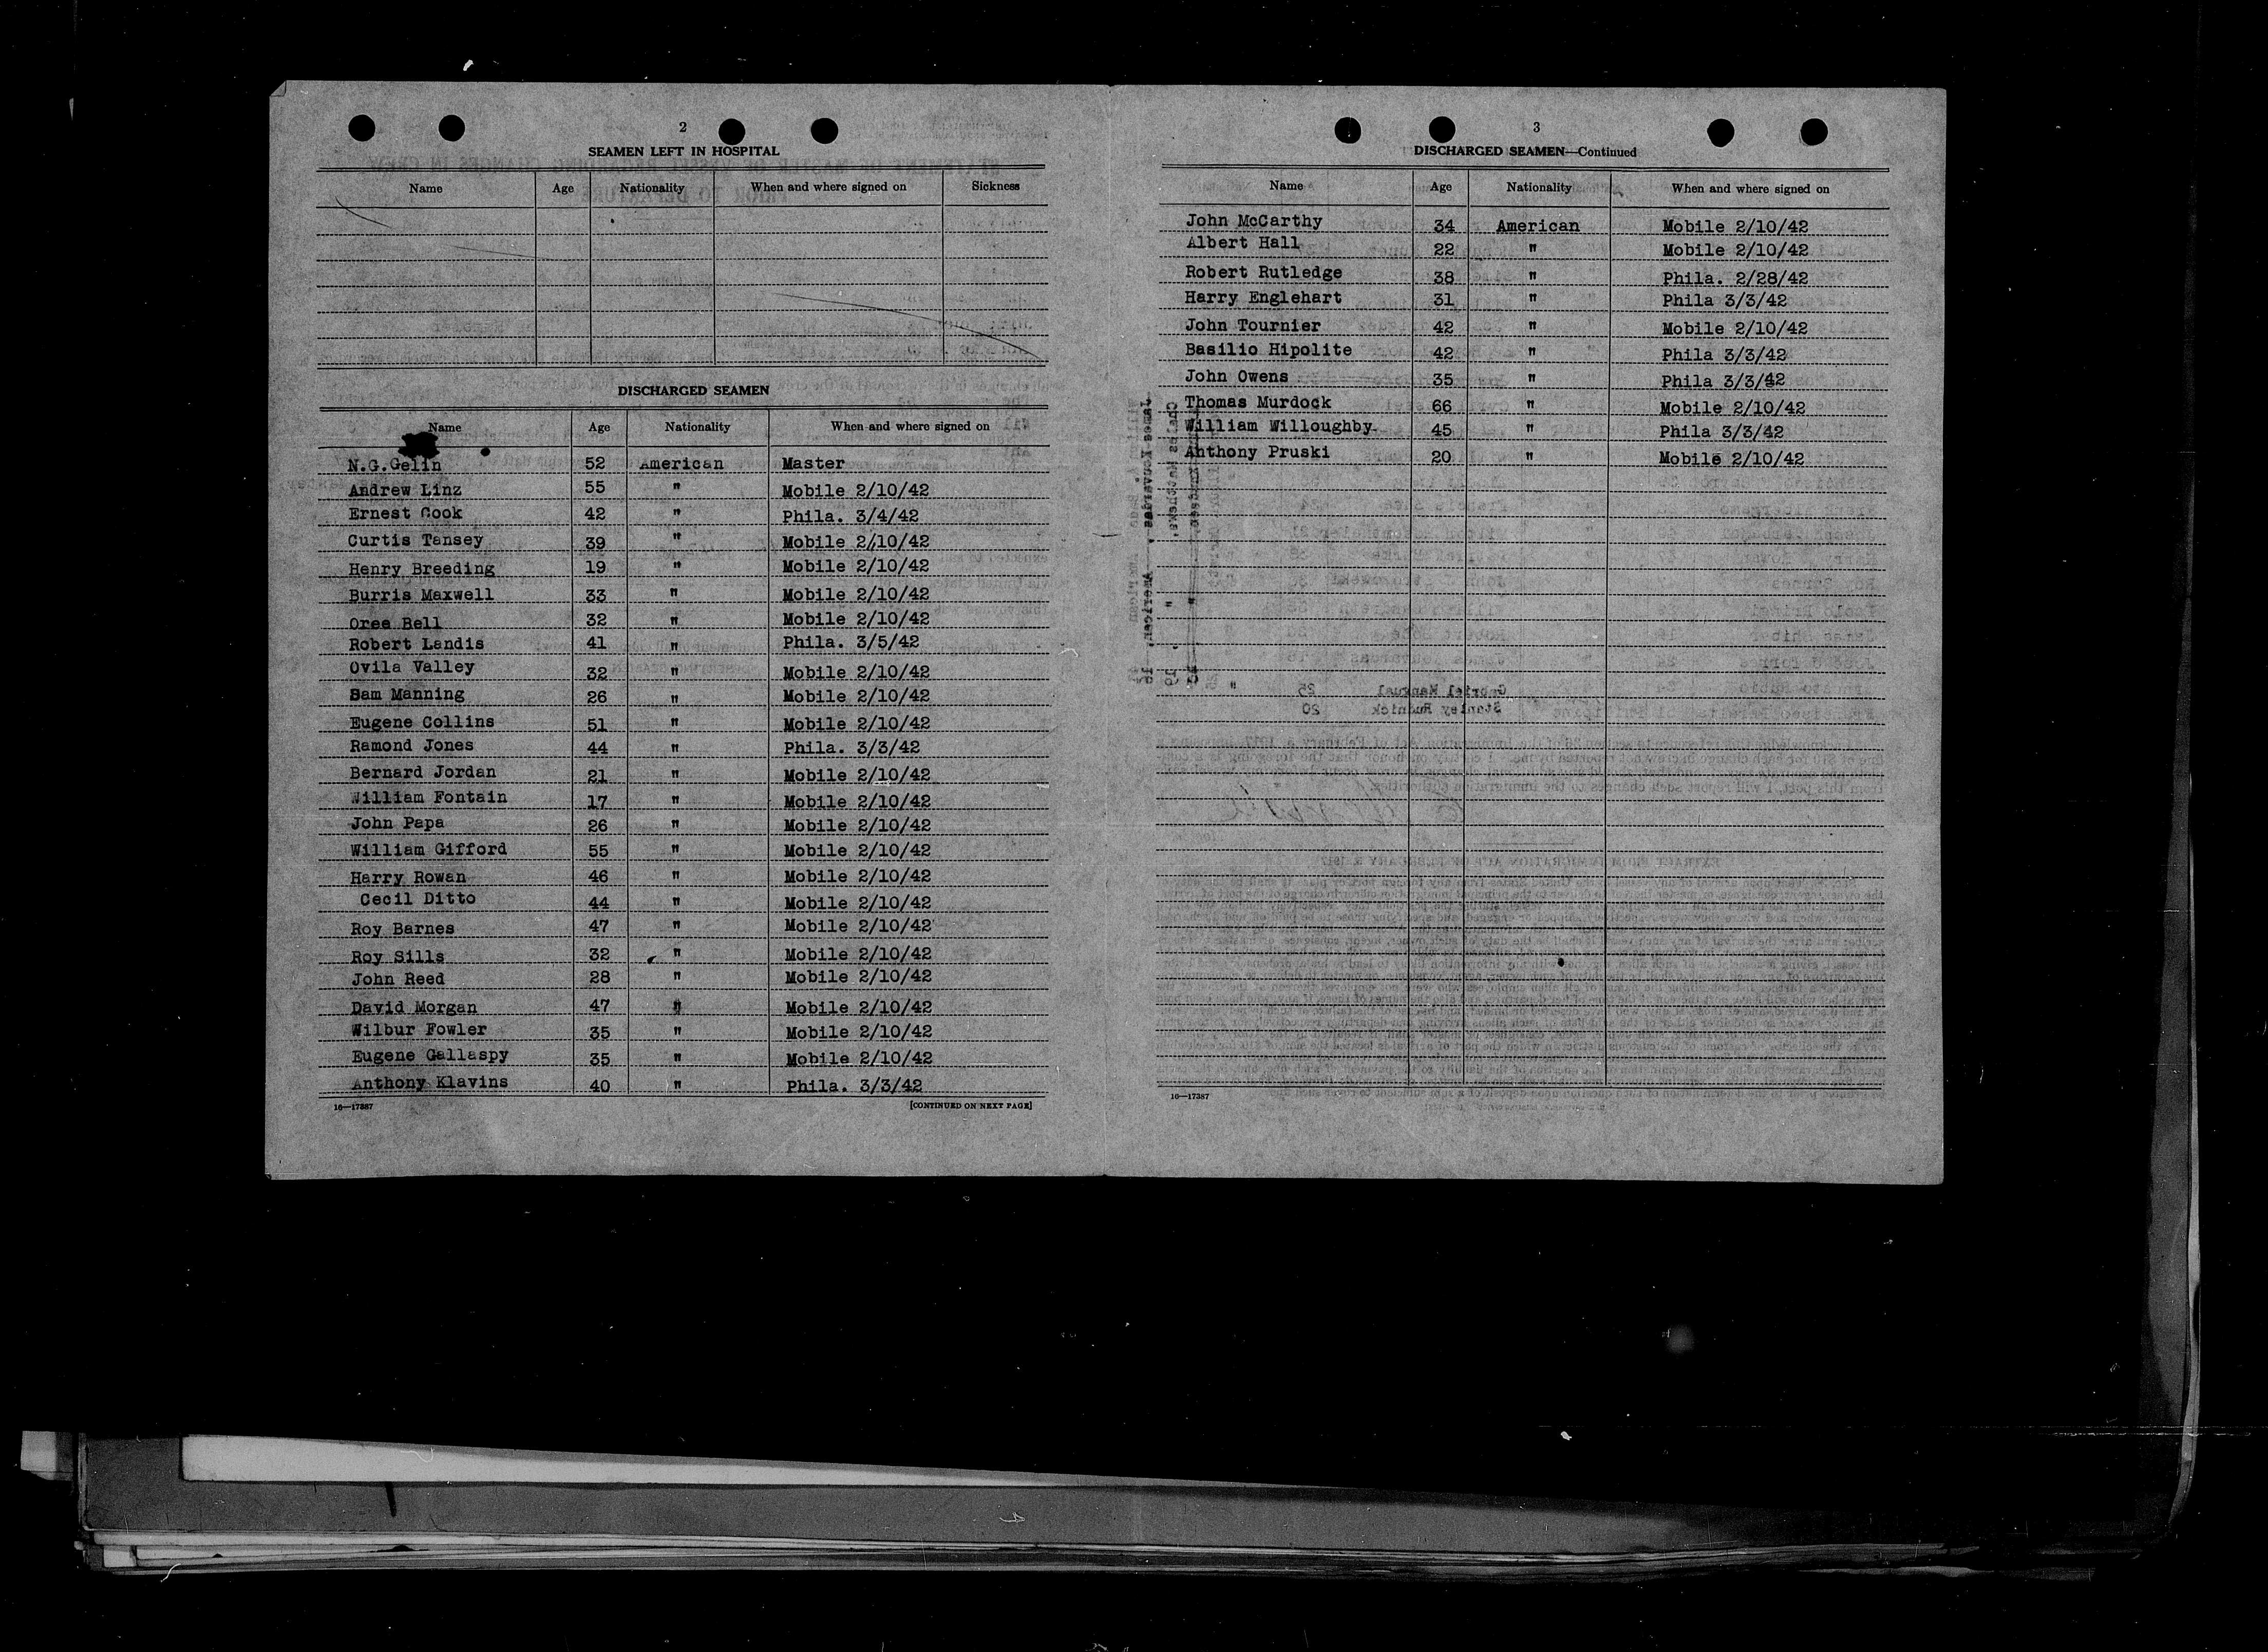 2
SEAMEN LEFT IN HOSPITAL
Name Age Nationality When and where signed on Sickness
DISCHARGED SEAMEN
Name Age Nationality When and where signed on
N.G.Gelin 52 American Master
Andrew Linz 55 " Mobile 2/10/42
Ernest Cook 42 " Phila. 3/4/42
Curtis Tansey 39 " Mobile 2/10/42
Henry Breeding 19 " Mobile 2/10/42
Burris Maxwell 33 " Mobile 2/10/42
Orea Bell 32 " Mobile 2/10/42
Robert Landis 41 " Phila. 3/5/42
Ovila Valley 32 " Mobile 2/10/42
Sam Manning 26 " Mobile 2/10/42
Eugene Collins 51 " Mobile 2/10/42
Ramond Jones 44 " Phila. 3/3/42
Bernard Jordan 21 " Mobile 2/10/42
William Fontain 17 " Mobile 2/10/42
John Papa 26 " Mobile 2/10/42
William Gifford 55 " Mobile 2/10/42
Harry Rowan 46 " Mobile 2/10/42
Cecil Ditto 44 " Mobile 2/10/42
Roy Barnes 47 " Mobile 2/10/42
Roy Sills 32 " Mobile 2/10/42
John Reed 28 " Mobile 2/10/42
David Morgan 47 " Mobile 2/10/42
Wilbur Fowler 35 " Mobile 2/10/42
Eugene Gallaspy 35 " Mobile 2/10/42
Anthony Klavins 40 " Phila. 3/3/42
16—17387 [CONTINUED ON NEXT PAGE]
3
DISCHARGED SEAMEN—Continued
Name Age Nationality When and where signed on
John McCarthy 34 American Mobile 2/10/42
Albert Hall 22 " Mobile 2/10/42
Robert Rutledge 38 " Phila. 2/28/42
Harry Englehart 31 " Phila 3/3/42
John Tournier 42 " Mobile 2/10/42
Basilio Hipolite 42 " Phila 3/3/42
John Owens 35 " Phila 3/3/42
Thomas Murdock 66 " Mobile 2/10/42
William Willoughby 45 " Phila 3/3/42
Anthony Pruski 20 " Mobile 2/10/42
16—17387